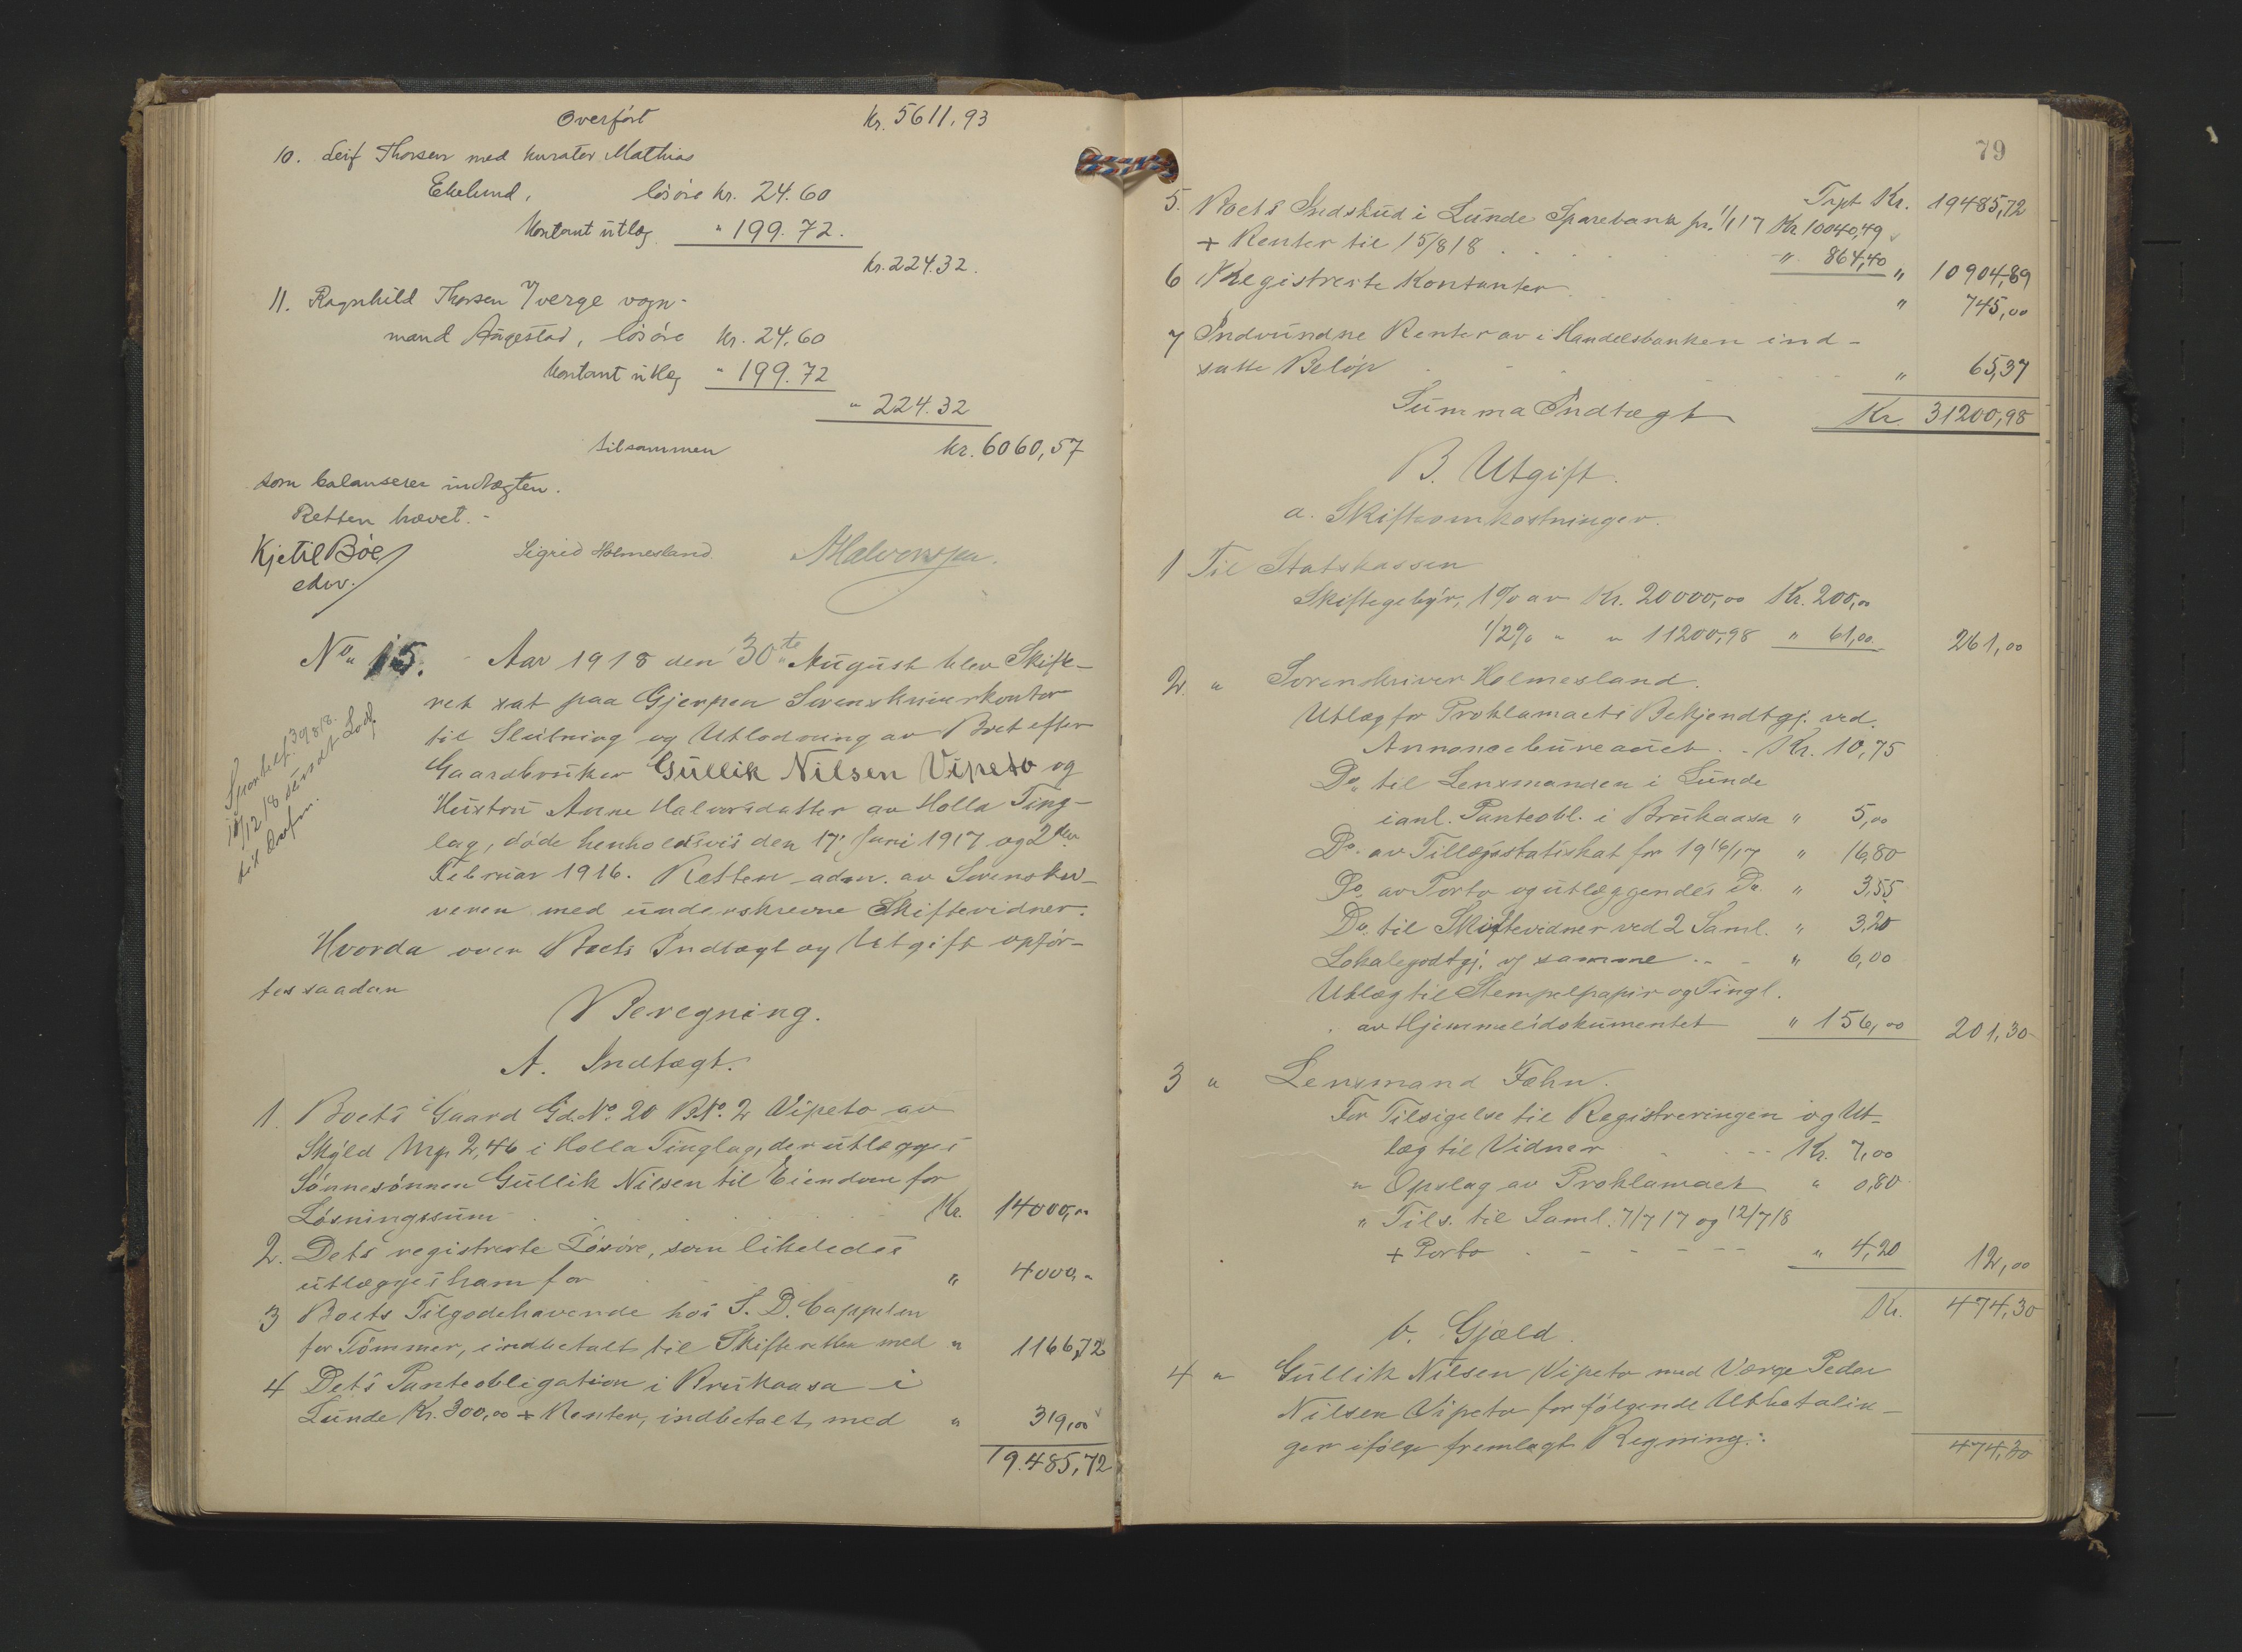 Overført Kr. 5611,93
10. Leif Thorsen med kurator Mathias
Ekelund, løsøre kr. 24.60
Kontant utlæg " 199.72.
kr. 224.32.
11. Ragnhild Thorsen v/verge vogn-
mand Angestad, løsøre kr. 24,60
Kontant utlæg " 199.72
" 224.32
tilsammen kr. 6060,57
som balanserer indtægten.
Retten hævet. -
Kjetil Bøe Sigrid Holmesland
edsv.
No. 15. Aar 1918 den 30te August blev Skifte-
ret sat paa Gjerpen Sorenskriverkontor
til Slutning og Utlodning av Boet efter
Gaardbruker Gullik Nilsen Vipeto og
Hustru Anne Halvorsdatter av Holla Ting-
lag, døde henholdsvis den 17. Juni 1917 og 2den
Februar 1916. Retten adm. av Sorenskri-
veren med underskrevne Skiftevidner.
Hvorda over Boets Indtægt og Utgift opfør-
tes saadan
Beregning.
A. Indtægt.
1. Boets Gaard Gd. No. 20 B.No. 2 Vipeto av
Skyld Mrk 2,46 i Holla Tinglag, der utlægges
Sønnesønnen Gullik Nilsen til Eiendom for
Løsningssum Kr. 14000,00
2. Dets registrerte Løsøre, som likeledes
utlægges ham for " 4000,"
3 Boets Tilgodehavende hos S. D. Cappelen
for Tømmer, indbetalt til Skifteretten med " 1166,72
4 Dets Panteobligation i Brukaasa i
Lunde Kr. 300,00 + Renter, indbetalt med " 319,00
19.485,72
79
Trpt Kr. 19485,72
5. Boets Indskud i Lunde Sparebank pr. 1/1 17 Kr 10040,49
+ Renter til 15/8 18 " 864,40 " 10904,89
6 Registrerte Kontanter " 745,00
7 Indvundne Renter av i Handelsbanken ind-
satte Beløp " 65,37
Summa Indtægt Kr. 31200,98
B. Utgift.
a. Skifteomkostninger.
1 Til Statskassen
Skiftegebyr, 1% av Kr. 20000,00 Kr. 200,00
1/2% " " 11200,98 " 61,00 261,00
2. " Sorenskriver Holmesland.
Utlæg for Proklamaets Bekjendtgj. ved
Annoncebureauet - Kr. 10,75
Do. til Lensmanden i Lunde
i anl. Panteobl. i Brukaasa " 5,00
Do. av Tillægsstatsskat for 1916/17 " 16,80
Do. av Porto og utlæggendes Do. " 3,55
Do. til Skiftevidner ved 2 Saml. " 3,20
Lokalegodtgj. v/ samme " 6,00
Utlæg til Stempelpapir og Tingl.
av Hjemmelsdokumentet " 156,00 201,30
3 " Lensmand Fæhn.
For Tilsigelse til Registreringen og Ut-
læg til Vidner Kr. 7,00
" Opslag av Proklamaet " 0,80
" Tils. til Saml. 7/7 17 og 12/7 18
+ Porto " 4,20 12,00
Kr. 474,30
b. Gjæld.
4 " Gullik Nilsen Vipeto med Værge Peder
Nilsen Vipeto for følgende Utbetalin-
ger ifølge fremlagt Regning:
474,30